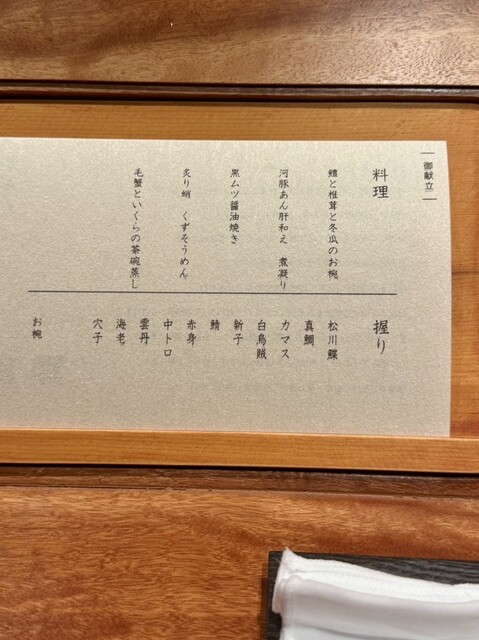 御献立
料理
鱧と椎茸と冬瓜のお椀
河豚あん肝和え 煮凝り
黒ムツ醤油焼き
炙り蛸 くずそうめん
毛蟹といくらの茶碗蒸し
握り
松川鰈
真鯛
カマス
白烏賊
新子
鯖
赤身
中トロ
雲丹
海老
穴子
お椀